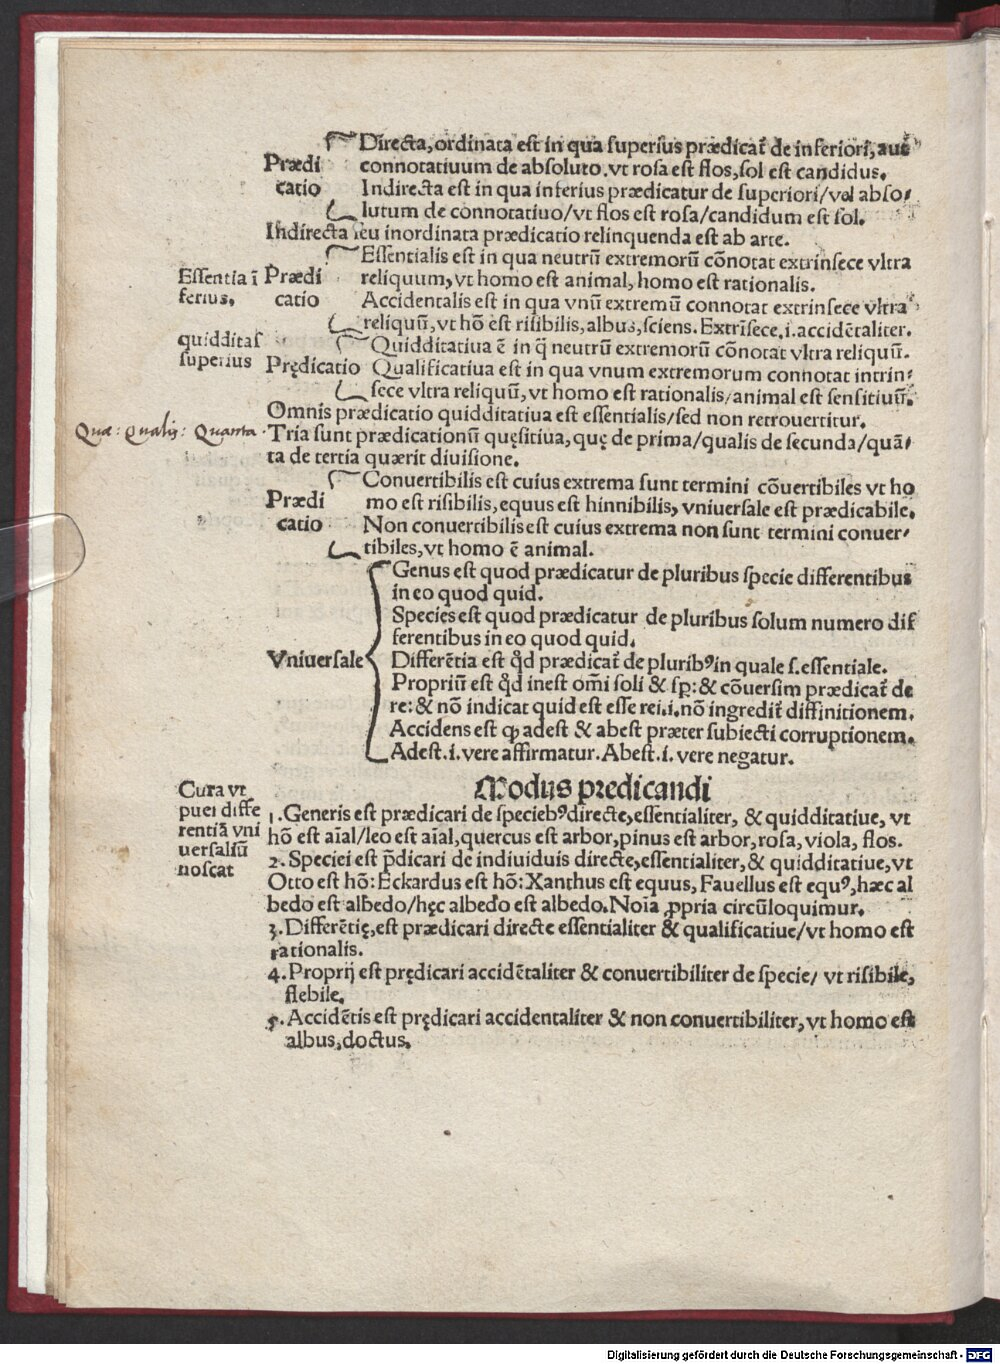 Directa, ordinata est in qua superius prædicat᷑ de inferiori, aut
Prædi connotatiuum de absoluto. vt rosa est flos, sol est candidus.
catio Indirecta est in qua inferius prædicatur de superiori/vel abso⸗
lutum de connotatiuo/vt flos est rosa/candidum est sol.
Indirecta seu inordinata prædicatio relinquenda est ab arte.
Essentialis est in qua neutrũ extremorũ cõnotat extrinsece vltra
Essentia ĩ Prædi reliquum, vt homo est animal, homo est rationalis.
ferius. catio Accidentalis est in qua vnũ extremũ connotat extrinsece vltra
reliquũ, vt hõ est risibilis, albus, sciens. Extrĩsece .i. accidẽtaliter.
quidditas Quidditatiua ẽ in q̃ neutrũ extremorũ cõnotat vltra reliquũ.
superius Prędicatio Qualificatiua est in qua vnum extremorum connotat intrin⸗
sece vltra reliquũ, vt homo est rationalis/animal est sensitiuũ.
Omnis prædicatio quidditatiua est essentialis/sed non retrouertitur.
Quæ: Qualis: Quanta · Tria sunt prædicationũ quęsitiua, quę de prima/qualis de secunda/quã⸗
ta de tertia quærit diuisione.
Conuertibilis est cuius extrema sunt termini cõuertibiles vt ho
Prædi mo est risibilis, equus est hinnibilis, vniuersale est prædicabile.
catio Non conuertibilis est cuius extrema non sunt termini conuer⸗
tibiles, vt homo ẽ animal.
Genus est quod prædicatur de pluribus specie differentibus
in eo quod quid.
Species est quod prædicatur de pluribus solum numero dif
ferentibus in eo quod quid.
Vniuersale Differẽtia est q̃d prædicat᷑ de plurib⁹ in quale s. essentiale.
Propriũ est q̃d inest om̃i soli & sp̱: & cõuersim prædicat᷑ de
re: & nõ indicat quid est esse rei .i. nõ ingredit᷑ diffinitionem.
Accidens est ꝙ adest & abest præter subiecti corruptionem.
Adest .i. vere affirmatur. Abest .i. vere negatur.
Modus predicandi
Cura vt
puer diffe
rentiã vni
uersaliũ
noscat
1. Generis est prædicari de specieb⁹ directe, essentialiter, & quidditatiue, vt
hõ est aĩal/leo est aĩal, quercus est arbor, pinus est arbor, rosa, viola, flos.
2. Speciei est p̃dicari de indiuiduis directe, essentialiter, & quidditatiue, vt
Otto est hõ: Eckardus est hõ: Xanthus est equus, Fauellus est equ⁹, hæc al
bedo est albedo/hęc albedo est albedo. Noĩa ꝓpria circũloquimur.
3. Differẽtię, est prædicari directe essentialiter & qualificatiue/vt homo est
rationalis.
4. Proprij est prędicari accidẽtaliter & conuertibiliter de specie/ vt risibile,
flebile.
5. Accidẽtis est prędicari accidentaliter & non conuertibiliter, vt homo est
albus, doctus.
Digitalisierung gefördert durch die Deutsche Forschungsgemeinschaft - DFG